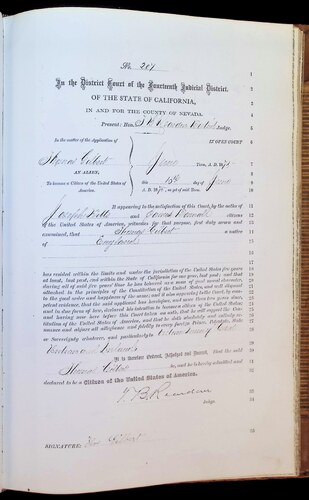 No. 207
In the District Court of the Fourteenth Judicial District,
OF THE STATE OF CALIFORNIA,
IN AND FOR THE COUNTY OF NEVADA.
Present: Hon. Judge.
In the matter of the Application of
IN OPEN COURT
Thomas Gilbert
June Term, A. D. 187
AN ALIEN,
this 15th day of June
To become a Citizen of the United States of America.
A. D. 187 , as yet of said Term.
It appearing to the satisfaction of this Court, by the oaths of
Joseph and Edward citizens
of the United States of America, witnesses for that purpose, first duly sworn and
examined, that Thomas Gilbert a native
of England
has resided within the limits and under the jurisdiction of the United States five years
at least, last past, and within the State of California for one year, last past; and that
during all of said five years' time he has behaved as a man of good moral character,
attached to the principles of the Constitution of the United States, and well disposed
to the good order and happiness of the same; and it also appearing to the Court, by com-
petent evidence, that the said applicant has heretofore, and more than two years since,
and in due form of law, declared his intention to become a citizen of the United States;
and having now here before this Court taken an oath, that he will support the Con-
stitution of the United States of America, and that he doth absolutely and entirely re-
nounce and abjure all allegiance and fidelity to every foreign Prince, Potentate, State
or Sovereignty whatever, and particularly to
It is therefore Ordered, Adjudged and Decreed, that the said
Thomas Gilbert be, and he is hereby admitted and
declared to be a Citizen of the United States of America.
Judge.
SIGNATURE: Gilbert